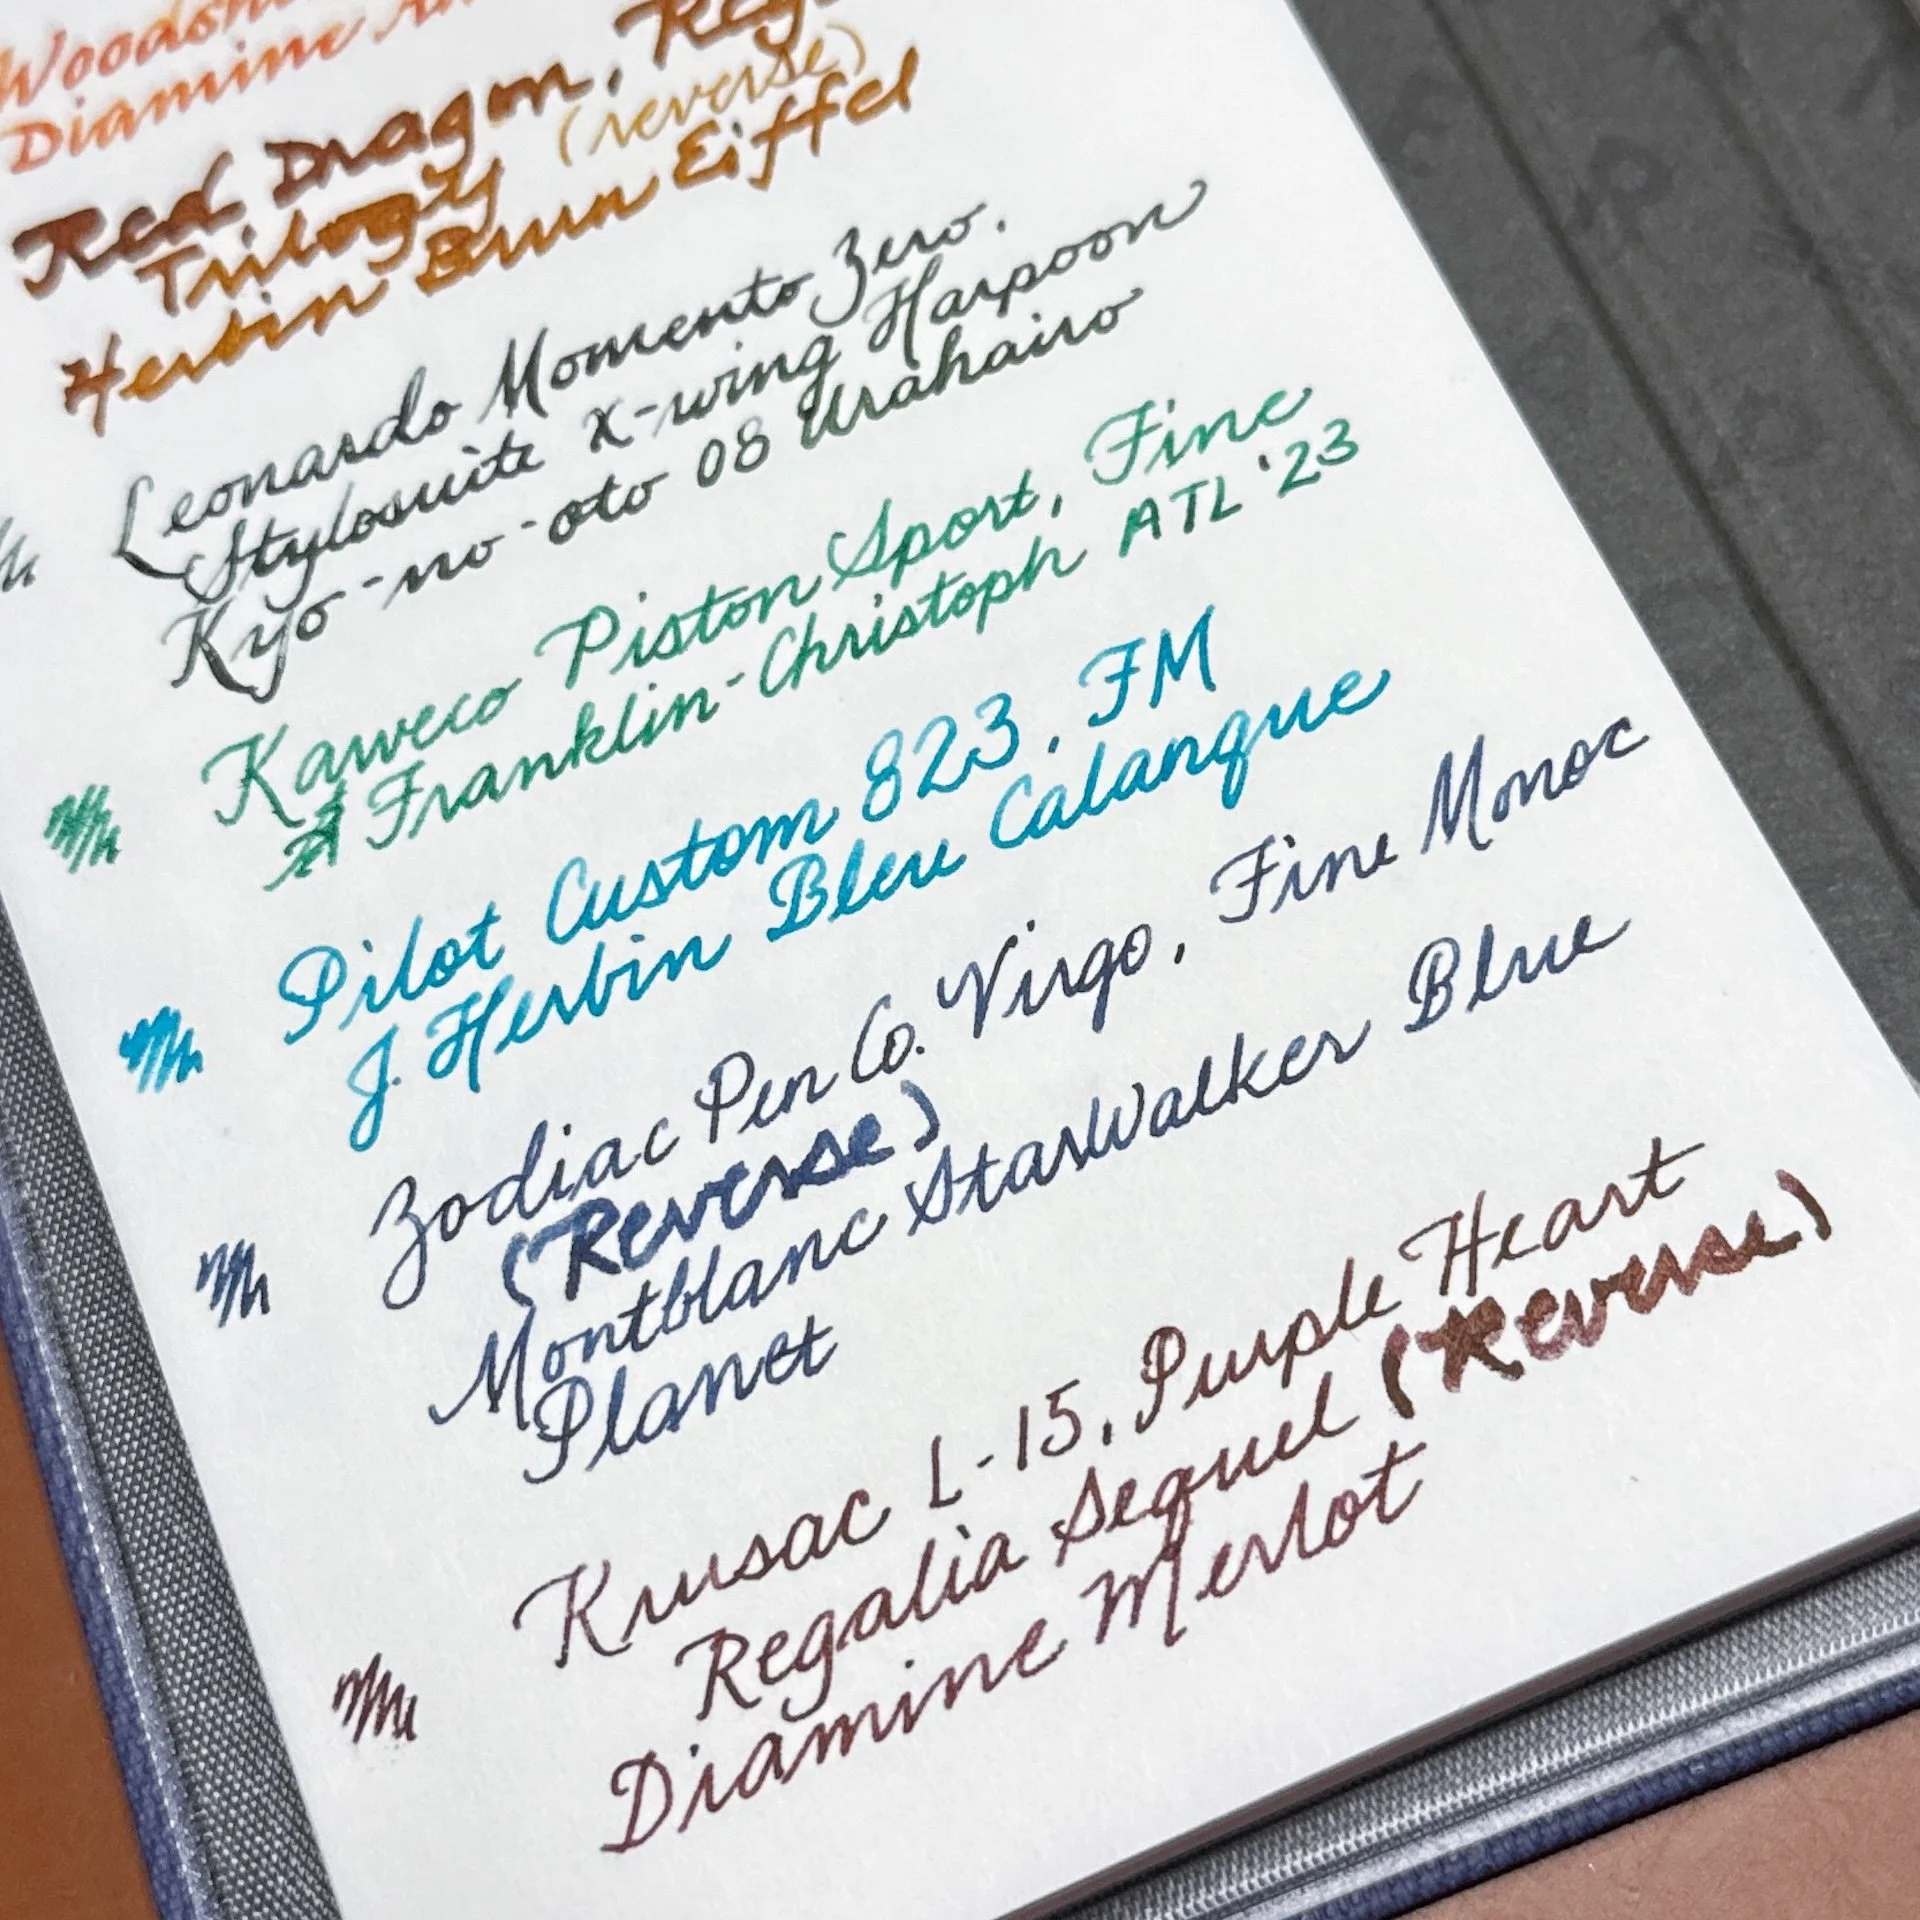 Diamine
Red Dragon,
Trilogy (reverse)
Herbin Brun Eiffel
Leonardo Momento Zero,
Stylosuite X-wing Harpoon
Kyo-no-oto 08 Urahairo
Kaweco Piston Sport, Fine
Franklin-Christoph ATL '23
Pilot Custom 823, FM
J. Herbin Bleu Calanque
Zodiac Pen Co. Virgo, Fine Monoc
(Reverse)
Montblanc StarWalker Blue
Planet
Krusac L-15, Purple Heart
Regalia Sequel (Reverse)
Diamine Merlot